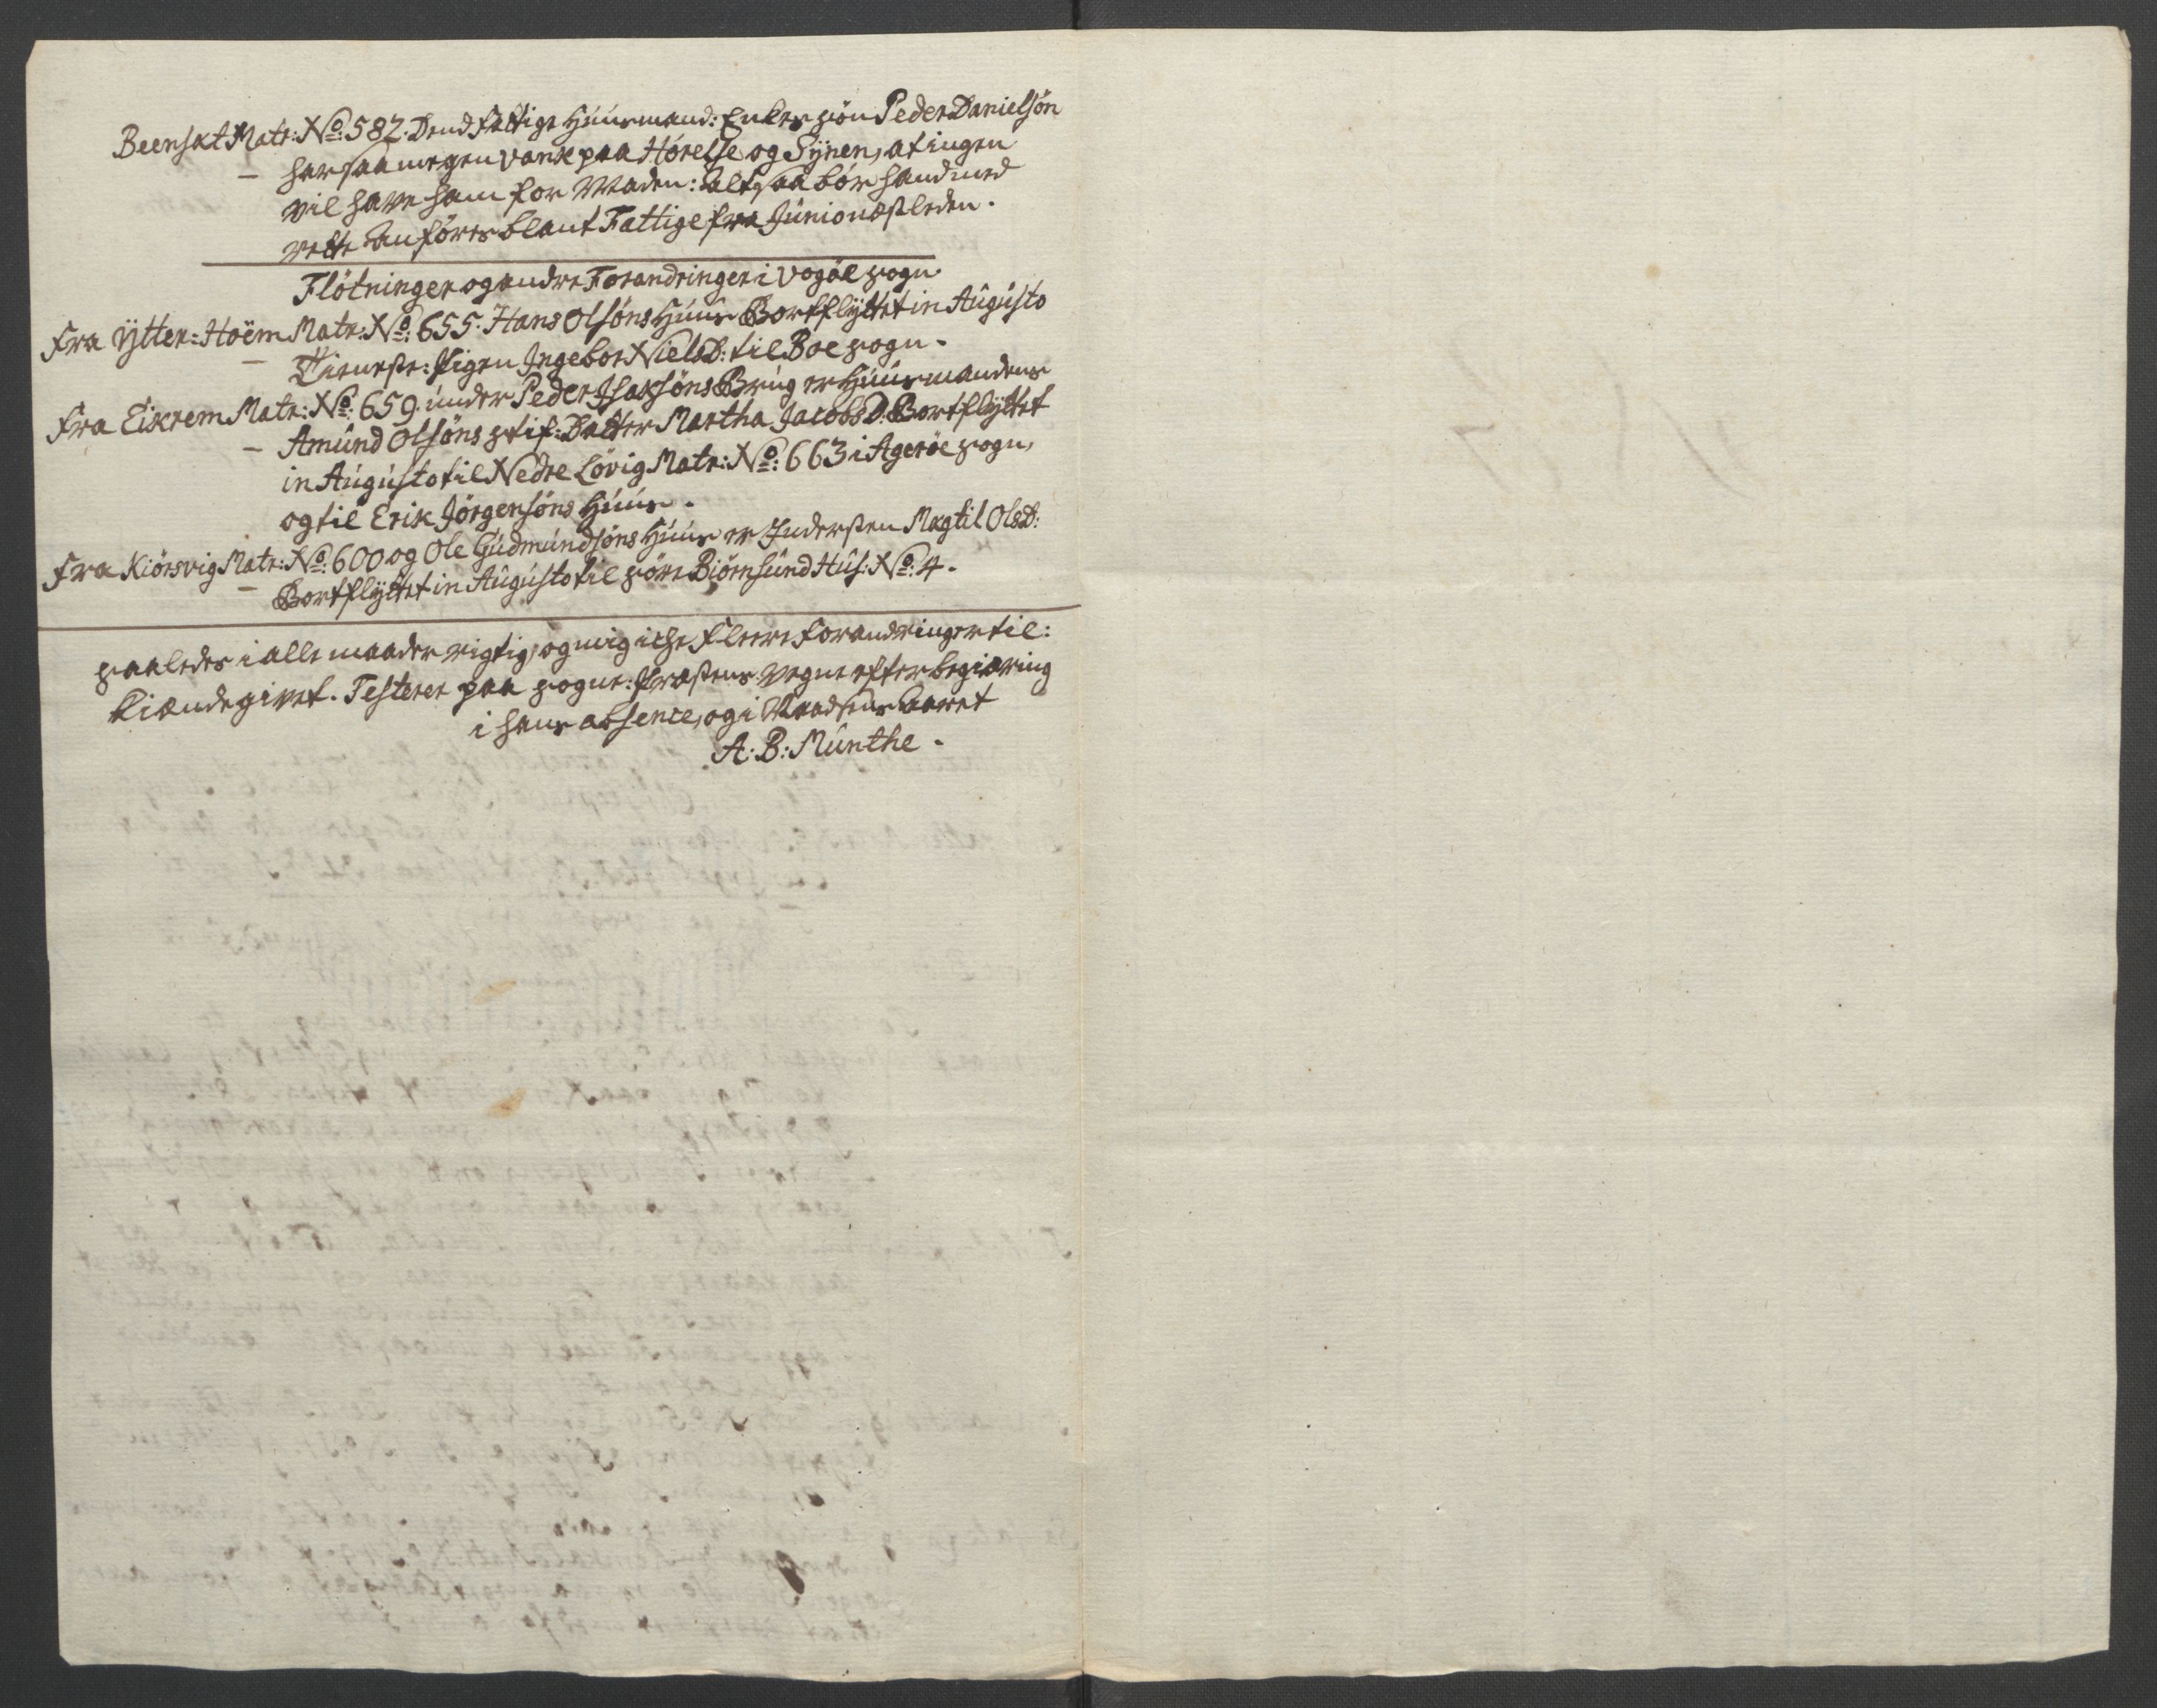 Beenskt Matr: No: 582. Dend fattige Huusmand: Enkes søn Peder Danielsön
— har saa megen vank paa Hörelse og Sÿnen, at ingen
vil have ham for Maden: Altsaa bör hand med
rette anföres blant Fattige fra Junio næstleden.
Flötninger og andre Forandringer i Vogöe sogn.
Fra Ÿtter=Hoëm Matr: No: 655. Hans Olsöns Huus Bortflÿttet in Augusto
— Tieneste: Pigen Ingebor NielsD: til Boe sogn.
Fra Eikrem Matr: No: 659. under Peder Isaksöns Brug er Huusmandens
— Amund Olsöns stif: Datter Martha JacobsD: Bortflÿttet
in Augusto til Nedre Lövig Matr: No: 663 i Ageröe sogn,
og til Erik Jörgensöns Huus.
Fra Kiörsvig Matr: No: 600 og Ole Gudmundsöns Huus er Indersten Magtil OlsD:
— Bortflÿttet in Augusto til söre Biörnsund Hus: No: 4.
saaledes i alle maader rigtig, og mig iche fleere forandringer til:
kiendegivet. Testerer paa sogne: Præstens vegne efter begiæring
i hans absence, og i Maadsens
A: B: Munthe.